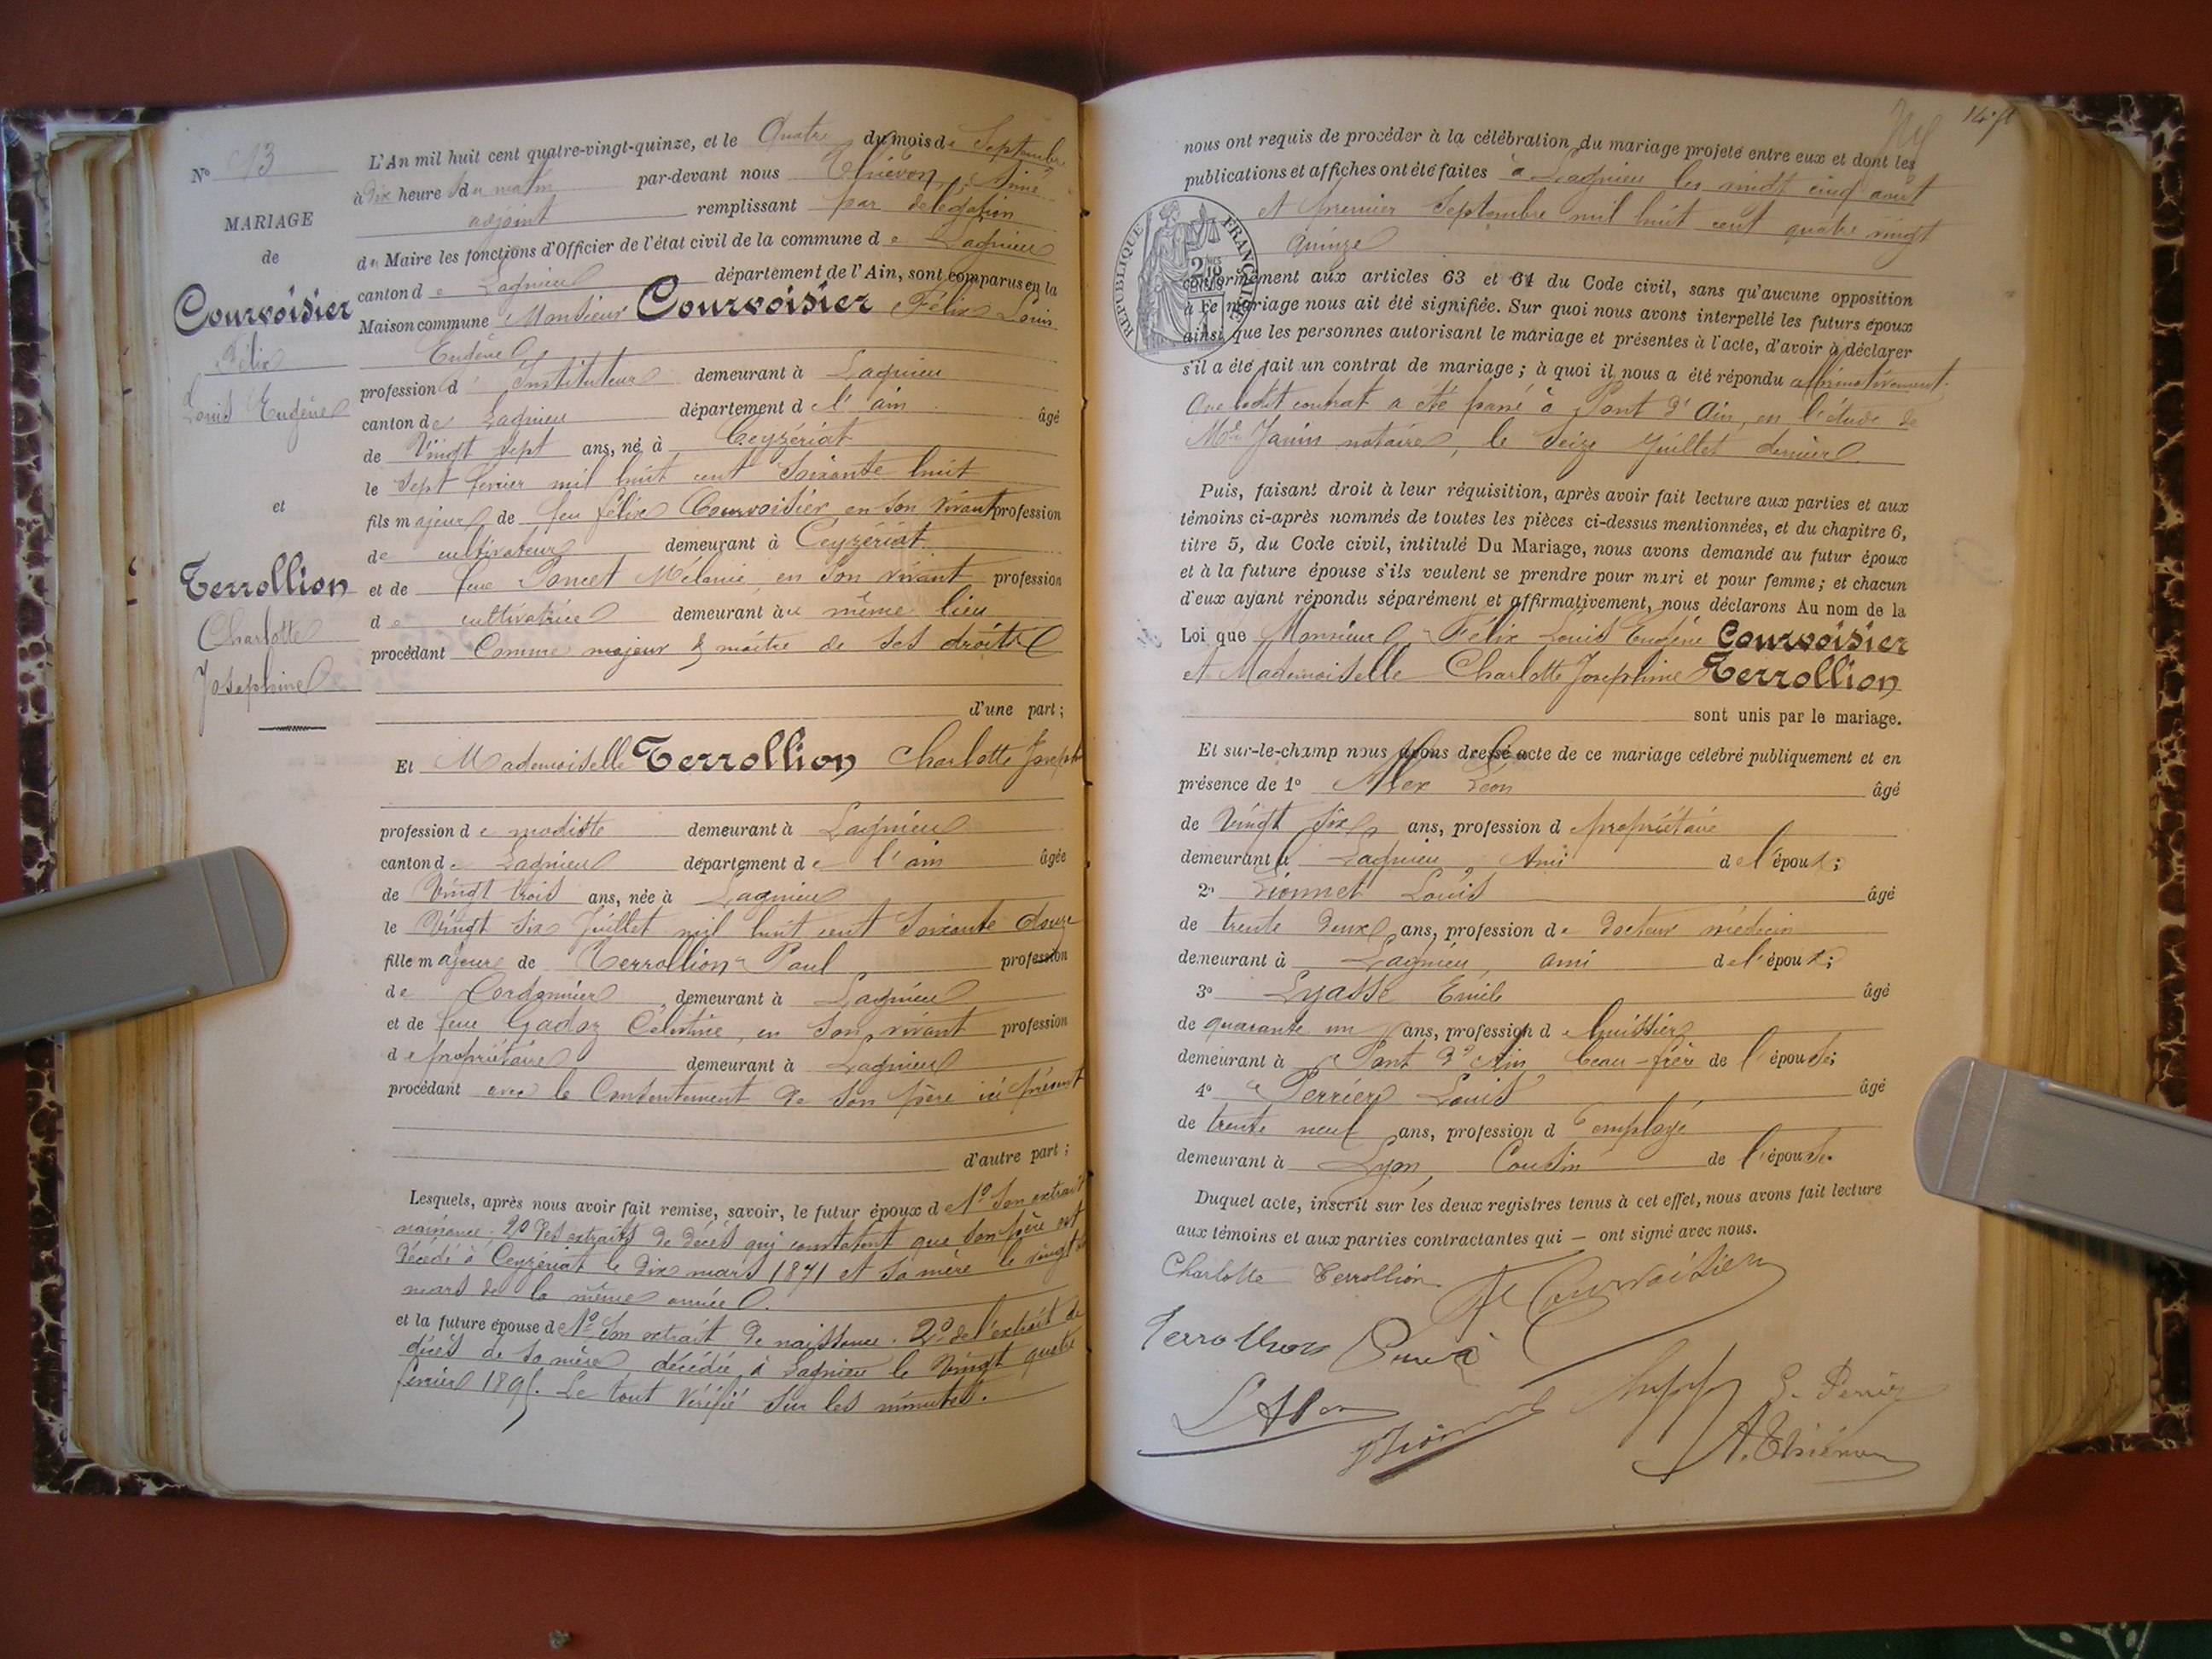 N° 13
MARIAGE
de
Courvoisier
Félix
Louis Eugène
et
Terrollion
Charlotte
Joséphine
L'An mil huit cent quatre-vingt-quinze, et le Quatre du mois de Septembre
à dix heures du matin par-devant nous Thiévon, Aimé
adjoint remplissant par délégation
du Maire les fonctions d'Officier de l'état civil de la commune de Lagnieu
canton de Lagnieu département de l'Ain, sont comparus en la
Maison commune Monsieur Courvoisier Félix Louis
Eugène
profession d' Instituteur demeurant à Lagnieu
canton de Lagnieu département de l'ain âgé
de Vingt sept ans, né à Ceyzériat
le sept février mil huit cent soixante huit
fils majeur de feu Félix Courvoisier en son vivant profession
de cultivateur demeurant à Ceyzériat
et de feue Poncet Mélanie en son vivant profession
de cultivatrice demeurant au même lieu
procédant Comme majeur & maître de ses droits
d'une part ;
Et Mademoiselle Terrollion Charlotte Joseph
profession de modiste demeurant à Lagnieu
canton de Lagnieu département de l'ain âgée
de Vingt trois ans, née à Lagnieu
le Vingt six Juillet mil huit cent soixante douze
fille majeure de Terrollion Paul profession
de Cordonnier demeurant à Lagnieu
et de feue Gadoz Célestine, en son vivant profession
de propriétaire demeurant à Lagnieu
procédant avec le Consentement de son père ici présent
d'autre part ;
Lesquels, après nous avoir fait remise, savoir, le futur époux de 1° Son extrait
naissance. 2° Des extraits de décès qui constatent que son père est
décédé à Ceyzériat le dix mars 1871 et sa mère le vingt
mars de la même année.
et la future épouse de 1° Son extrait de naissance. 2° de l'extrait de
décès de sa mère décédée à Lagnieu le Vingt quatre
février 1895. Le tout vérifié sur les minutes.
nous ont requis de procéder à la célébration du mariage projeté entre eux et dont les
publications et affiches ont été faites à Lagnieu les vingt cinq août
et premier Septembre mil huit cent quatre vingt
quinze
RÉPUBLIQUE FRANÇAISE
conformément aux articles 63 et 64 du Code civil, sans qu'aucune opposition
à ce mariage nous ait été signifiée. Sur quoi nous avons interpellé les futurs époux
ainsi que les personnes autorisant le mariage et présentes à l'acte, d'avoir à déclarer
s'il a été fait un contrat de mariage ; à quoi il nous a été répondu affirmativement.
Que ledit contrat a été passé à Pont d'Ain, en l'étude de
Me Janin notaire, le seize Juillet dernier
Puis, faisant droit à leur réquisition, après avoir fait lecture aux parties et aux
témoins ci-après nommés de toutes les pièces ci-dessus mentionnées, et du chapitre 6,
titre 5, du Code civil, intitulé Du Mariage, nous avons demandé au futur époux
et à la future épouse s'ils veulent se prendre pour mari et pour femme ; et chacun
d'eux ayant répondu séparément et affirmativement, nous déclarons Au nom de la
Loi que Monsieur Félix Louis Eugène Courvoisier
et Mademoiselle Charlotte Joséphine Terrollion
sont unis par le mariage.
Et sur-le-champ nous avons dressé acte de ce mariage célébré publiquement et en
présence de 1° Alex Léon âgé
de Vingt six ans, profession de propriétaire
demeurant à Lagnieu, Ami de l'époux ;
2° Lionnet Louis âgé
de trente deux ans, profession de docteur médecin
demeurant à Lagnieu ami de l'époux ;
3° Lyasse Emile âgé
de quarante un ans, profession d huissier
demeurant à Pont d'Ain beau-frère de l'épouse ;
4° Perrier Louis âgé
de trente neuf ans, profession d'employé
demeurant à Lyon, Cousin de l'épouse.
Duquel acte, inscrit sur les deux registres tenus à cet effet, nous avons fait lecture
aux témoins et aux parties contractantes qui — ont signé avec nous.
Charlotte Terrollion
Courvoisier
Terrollion
L Alex
Perrier
A. Thiévon